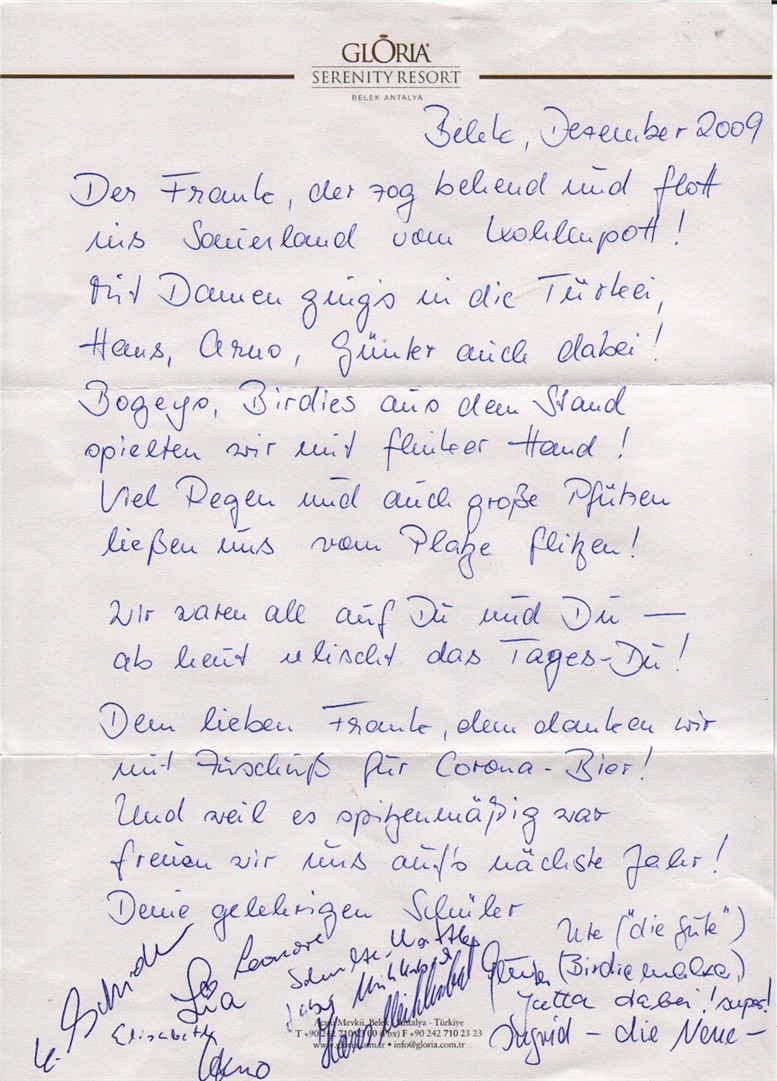 GLORIA
SERENITY RESORT
BELEK ANTALYA
Belek, Dezember 2009
Der Frank, der zog behend und flott
ins Sauerland vom Kohlenpott!
Mit Damen ging's in die Türkei,
Hans, Arno, Günter auch dabei!
Bogeys, Birdies aus dem Stand
spielten wir mit flinker Hand!
Viel Regen und auch große Pfützen
ließen uns vom Platze flitzen!
Wir waren all auf Du und Du —
ab heut erlischt das Tages-Du!
Dem lieben Frank, dem danken wir
mit Zuschuß für Corona-Bier!
Und weil es spitzenmäßig war
freuen wir uns auf's nächste Jahr!
Deine gelehrigen Schüler
Ute ("die Gute")
Leonore
Lia
Günter (Birdiemaker)
Jutta dabei! super!
Elisabeth
Arno
Ingrid – die Neue –
Mevkii, Belek Antalya - Türkiye
T +90 242 710 23 00 (Pbx) F +90 242 710 23 23
www.gloria.com.tr • info@gloria.com.tr